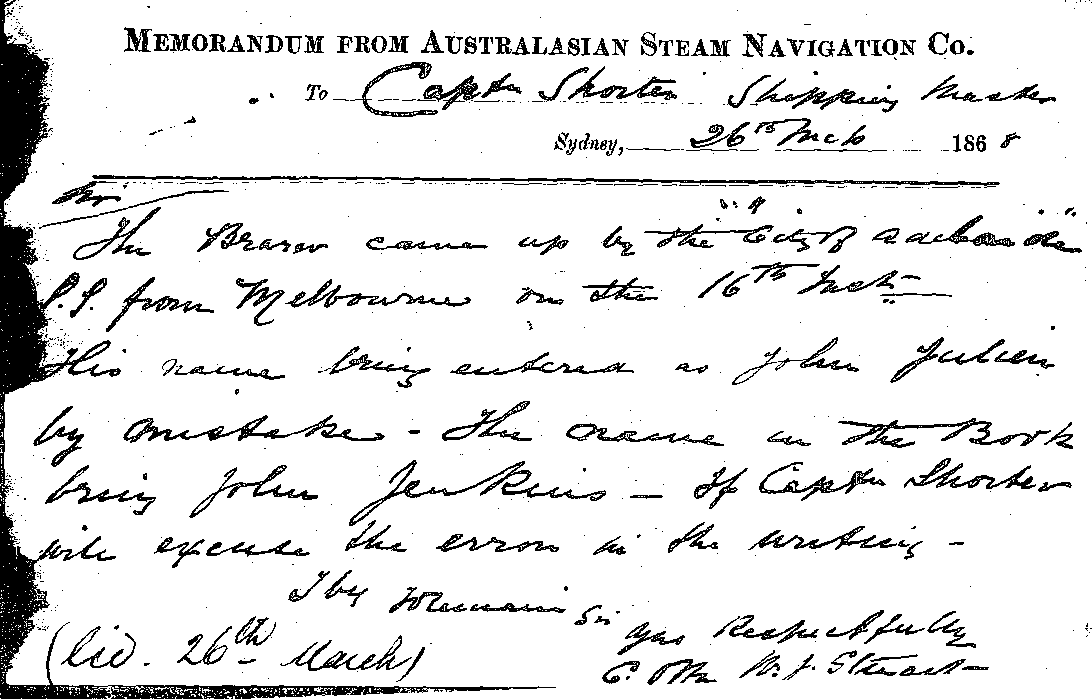 MEMORANDUM FROM AUSTRALASIAN STEAM NAVIGATION CO.
To Captn Shorter Shipping Master
Sydney, 26th Mch 1868
Sir
The Bearer came up by the "City of Adelaide"
S.S. from Melbourne on the 16th Inst
His name being entered as John Julien
by mistake - The name in the Book
being John Jenkins - If Captn Shorter
will excuse the error in the writing -
I beg remain Sir
yrs Respectfully
W. J. Stewart
26th March)